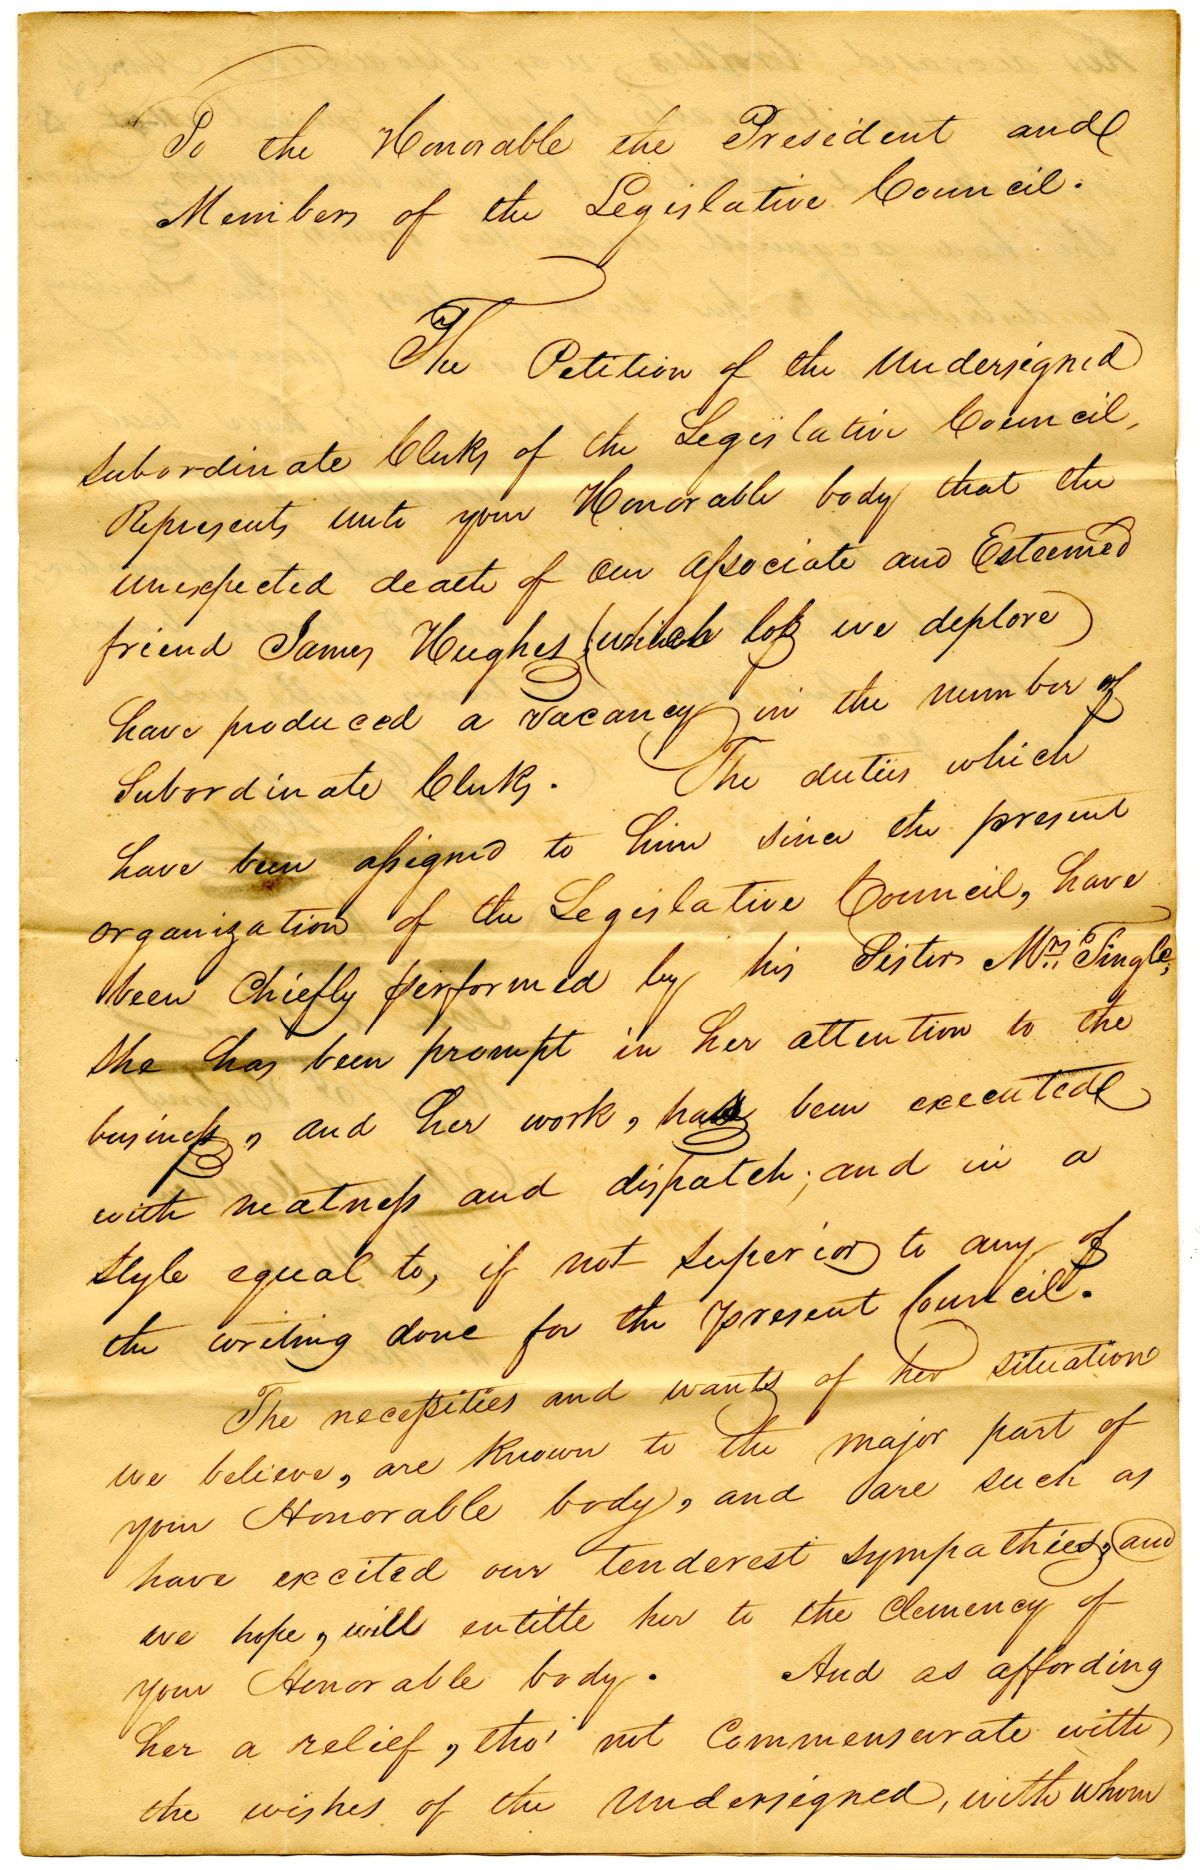 To the Honorable the President and
Members of the Legislative Council.
The Petition of the Undersigned
subordinate Clerks of the Legislative Council,
Represents unto your Honorable body that the
unexpected death of our associate and Esteemed
friend James Hughes (which loss we deplore)
have produced a vacancy in the number of
Subordinate Clerks. The duties which
have been assigned to him since the present
organization of the Legislative Council, have
been chiefly performed by his Sister Mrs. Tingle,
she has been prompt in her attention to the
business, and her work, has been executed
with neatness and dispatch; and in a
style equal to, if not superior to any of
the writing done for the present Council.
The necessities and wants of her situation
we believe, are known to the major part of
your Honorable body, and are such as
have excited our tenderest sympathies, and
we hope, will entitle her to the clemency of
your Honorable body. And as affording
her a relief, tho' not Commensurate with
the wishes of the Undersigned, with whom